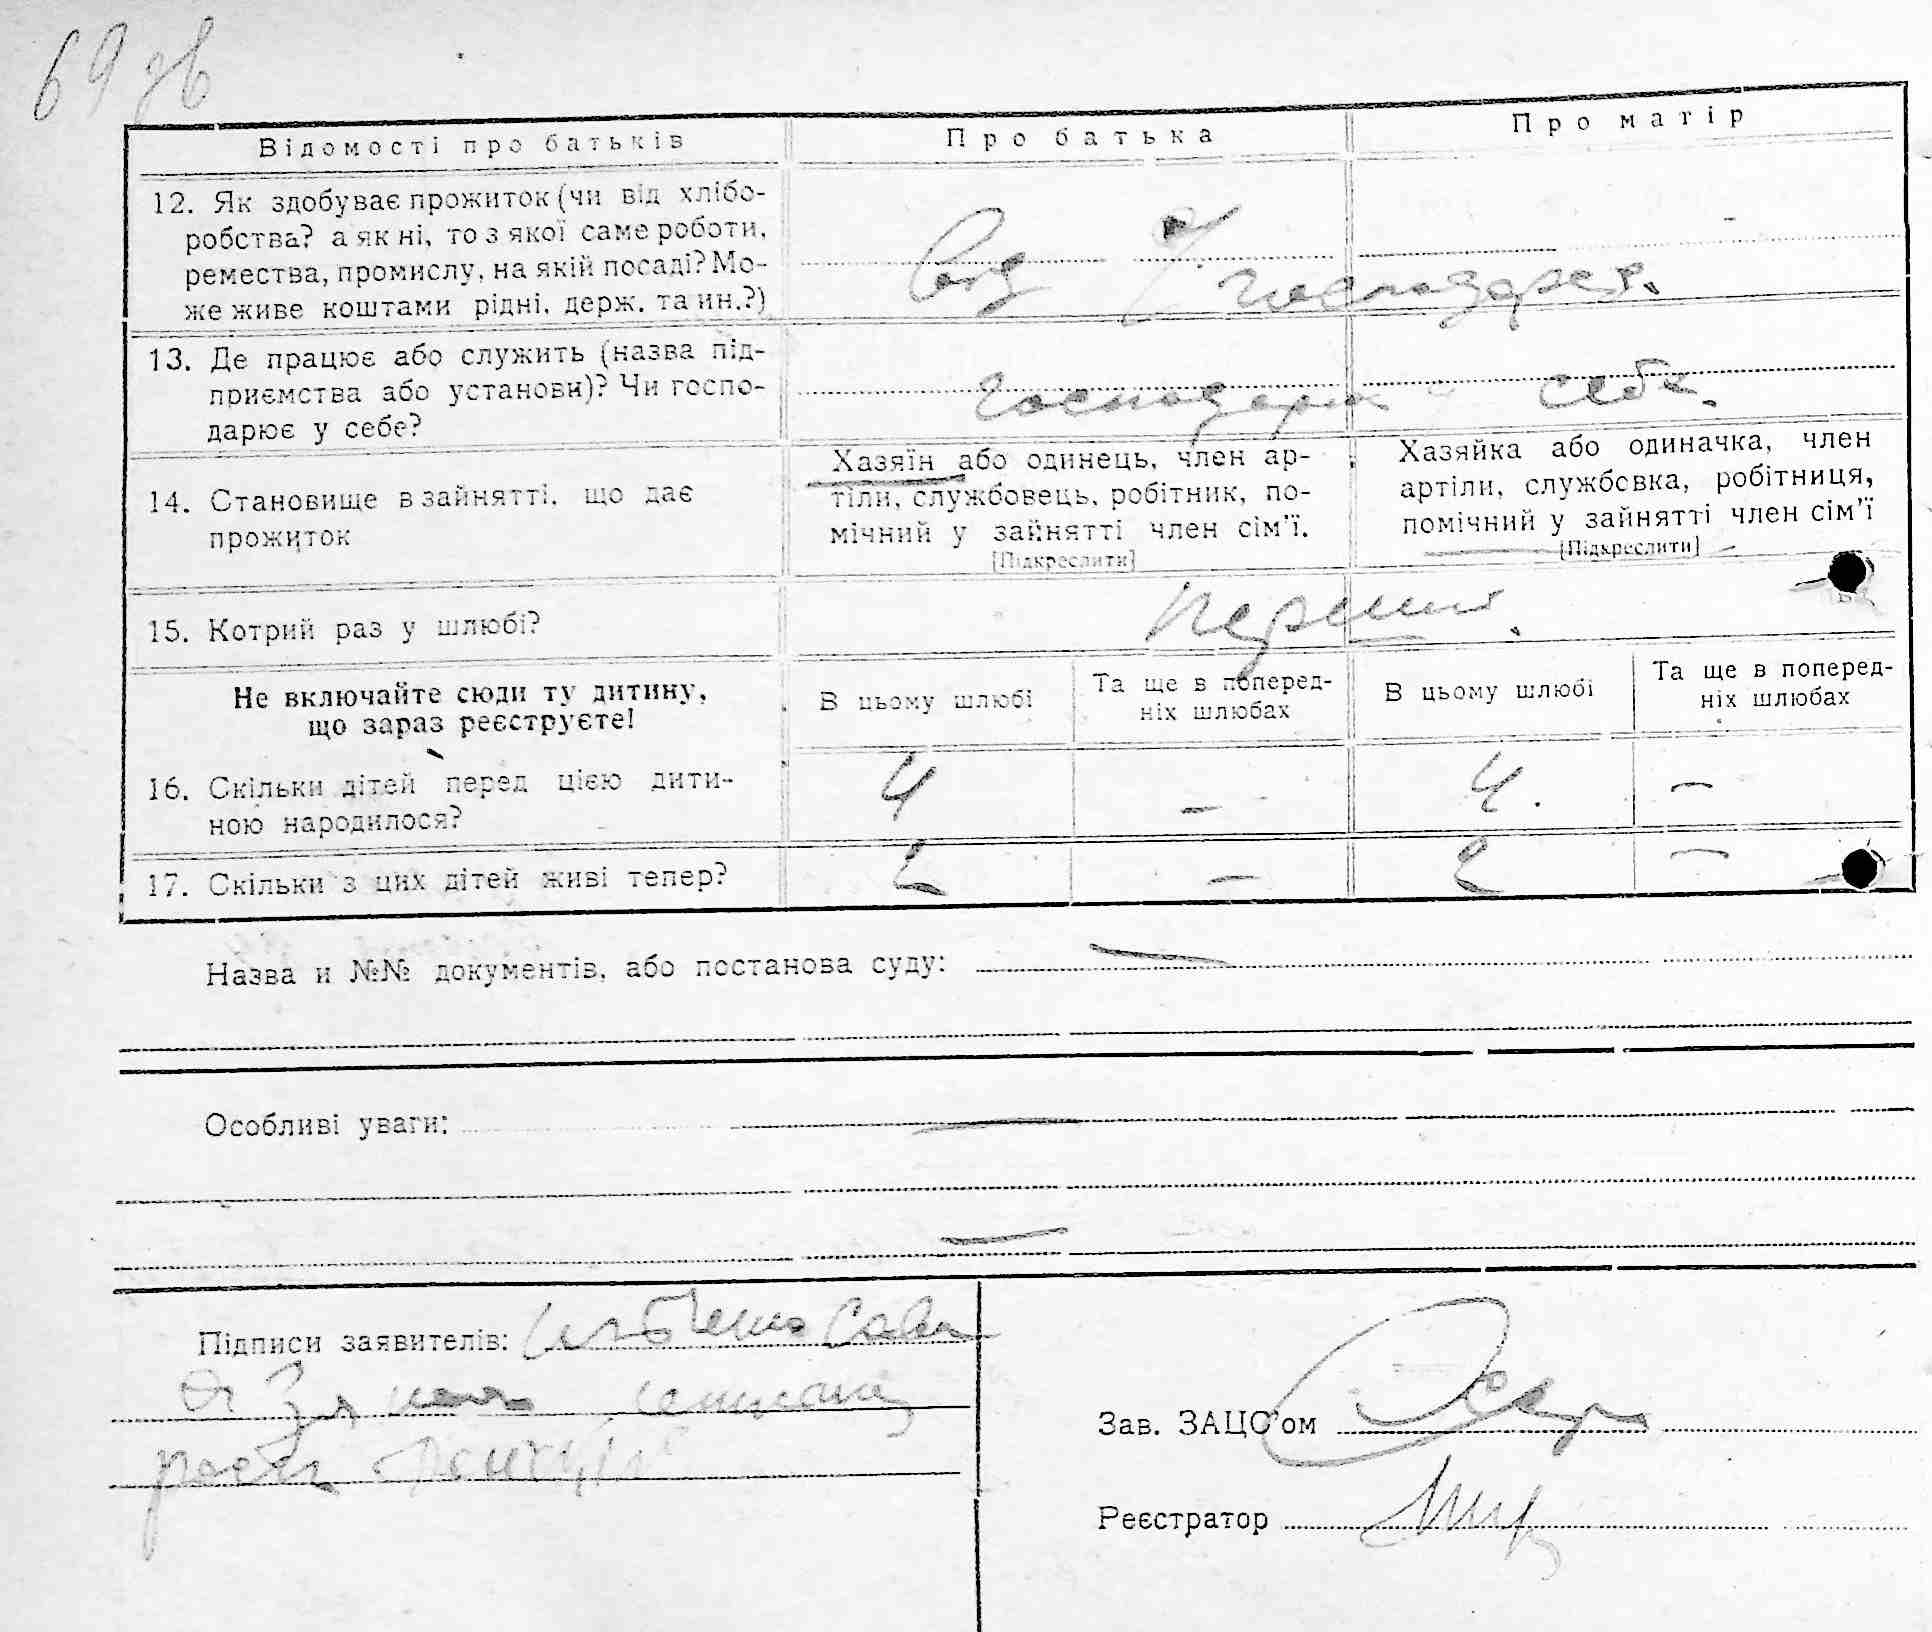 69 зв
Відомості про батьків
Про батька
Про матір
12. Як здобуває прожиток (чи від хлібо-
робства? а як ні, то з якої саме роботи,
ремества, промислу, на якій посаді? Мо-
же живе коштами рідні, держ. та ин.?)
Від
господарст.
13. Де працює або служить (назва під-
приємства або установи)? Чи госпо-
дарює у себе?
Господарює
себе.
14. Становище в зайнятті, що дає
прожиток
Хазяїн або одинець, член ар-
тіли, службовець, робітник, по-
мічний у зайнятті член сім'ї.
[Підкреслити]
Хазяйка або одиначка, член
артіли, службовка, робітниця,
помічний у зайнятті член сім'ї
[Підкреслити]
15. Котрий раз у шлюбі?
Перший.
Не включайте сюди ту дитину,
що зараз реєструєте!
В цьому шлюбі
Та ще в поперед-
ніх шлюбах
В цьому шлюбі
Та ще в поперед-
ніх шлюбах
16. Скільки дітей перед цією дити-
ною народилося?
4 – 4. –
17. Скільки з цих дітей живі тепер?
2 – 2 –
Назва и №№ документів, або постанова суду: —
Особливі уваги: —
—
Підписи заявителів:
Зав. ЗАЦС'ом
Реєстратор